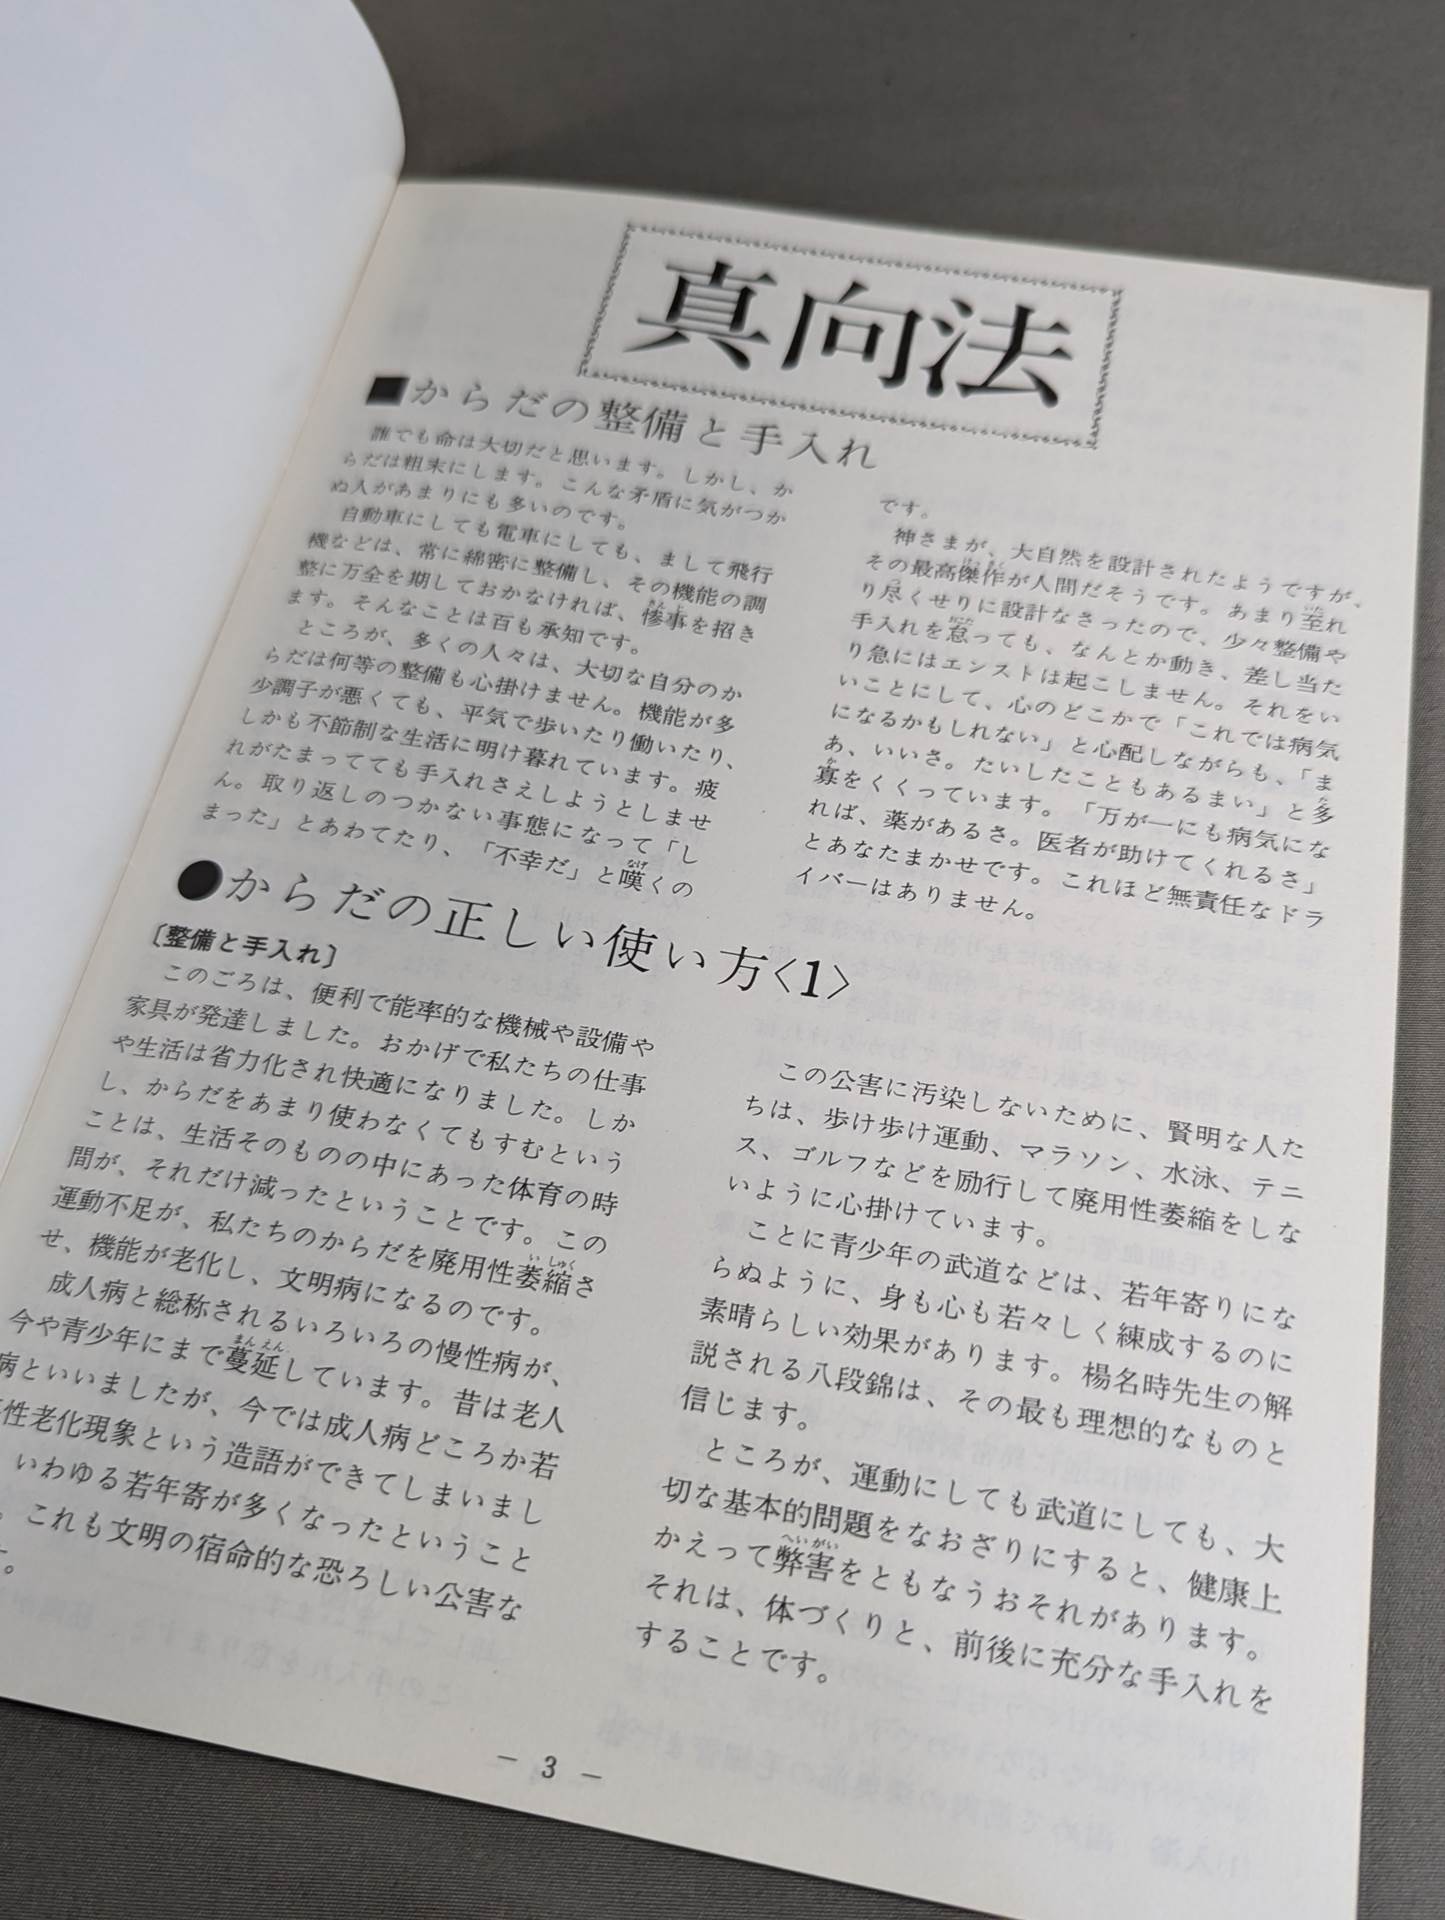 真向法
■からだの整備と手入れ
誰でも命は大切だと思います。しかし、か
らだは粗末にします。こんな矛盾に気がつか
ぬ人があまりにも多いのです。
自動車にしても電車にしても、まして飛行
機などは、常に綿密に整備し、その機能の調
整に万全を期しておかなければ、惨事を招き
ます。そんなことは百も承知です。
ところが、多くの人々は、大切な自分のか
らだは何等の整備も心掛けません。機能が多
少調子が悪くても、平気で歩いたり働いたり、
しかも不節制な生活に明け暮れています。疲
れがたまってても手入れさえしようとしませ
ん。取り返しのつかない事態になって「し
まった」とあわてたり、「不幸だ」と嘆くの
です。
神さまが、大自然を設計されたようですが、
その最高傑作が人間だそうです。あまり至れ
り尽くせりに設計なさったので、少々整備や
手入れを怠っても、なんとか動き、差し当た
り急にはエンストは起こしません。それをい
いことにして、心のどこかで「これでは病気
になるかもしれない」と心配しながらも、「ま
あ、いいさ。たいしたこともあるまい」と多
寡をくくっています。「万が一にも病気にな
れば、薬があるさ。医者が助けてくれるさ」
とあなたまかせです。これほど無責任なドラ
イバーはありません。
●からだの正しい使い方〈1〉
〔整備と手入れ〕
このごろは、便利で能率的な機械や設備や
家具が発達しました。おかげで私たちの仕事
や生活は省力化され快適になりました。しか
し、からだをあまり使わなくてもすむという
ことは、生活そのものの中にあった体育の時
間が、それだけ減ったということです。この
運動不足が、私たちのからだを廃用性萎縮さ
せ、機能が老化し、文明病になるのです。
成人病と総称されるいろいろの慢性病が、
今や青少年にまで蔓延しています。昔は老人
病といいましたが、今では成人病どころか若
性老化現象という造語ができてしまいまし
いわゆる若年寄が多くなったということ
。これも文明の宿命的な恐ろしい公害な
す。
この公害に汚染しないために、賢明な人た
ちは、歩け歩け運動、マラソン、水泳、テニ
ス、ゴルフなどを励行して廃用性萎縮をしな
いように心掛けています。
ことに青少年の武道などは、若年寄りにな
らぬように、身も心も若々しく練成するのに
素晴らしい効果があります。楊名時先生の解
説される八段錦は、その最も理想的なものと
信じます。
ところが、運動にしても武道にしても、大
切な基本的問題をなおざりにすると、健康上
かえって弊害をともなうおそれがあります。
それは、体づくりと、前後に充分な手入れを
することです。
― 3 ―